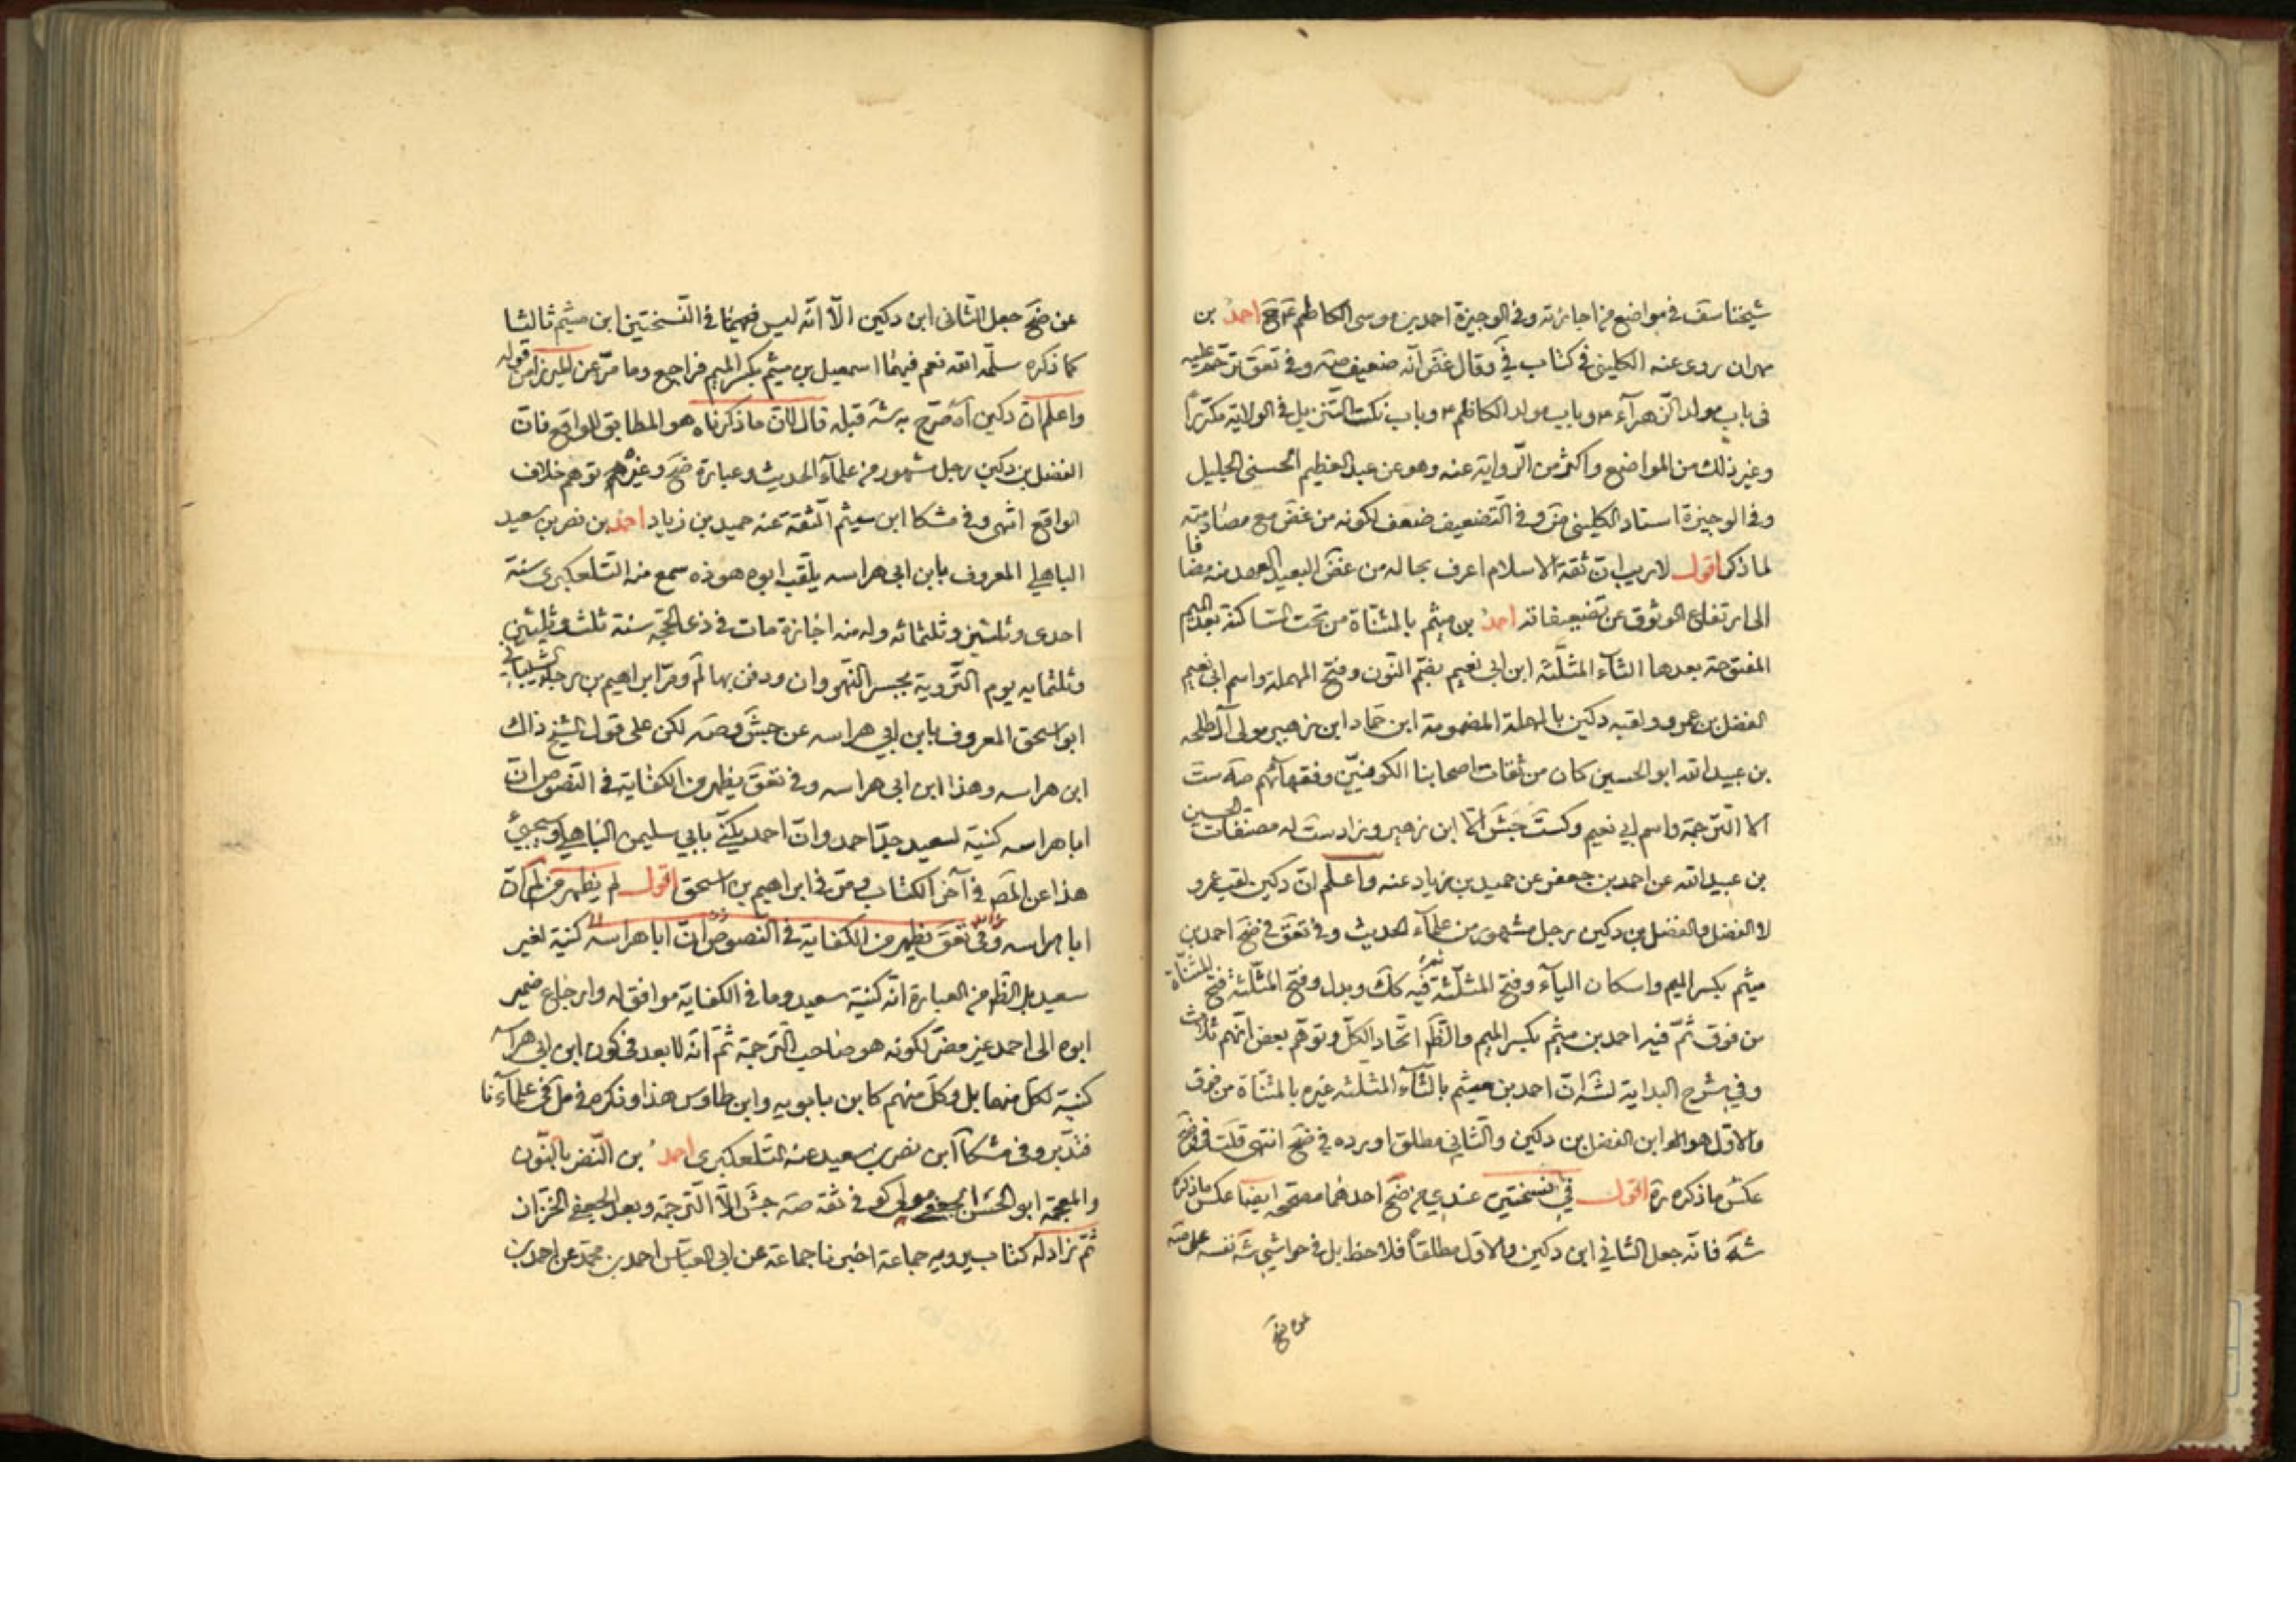 شيخنا سف في مواضع من اجازته وفي الوجيزة احمد بن موسى الكاظم ع مح احمد بن
مهران روى عنه الكليني في كتاب في وقال غض انه ضعيف صه وفي تعق ترحم عليه
في باب مولد الزهرآء ء وباب مولد الكاظم ء وباب نكت التنزيل في الولاية مكررا
وغير ذلك من المواضع واكثر من الرواية عنه وهو عن عبد العظيم الحسني الجليل
وفي الوجيزة استاد الكليني وفي التضعيف ضعف لكونه من غض مع مصادمته
لما ذكر اقول لا ريب ان ثقة الاسلام اعرف بحاله من غض البعيد العهد منه مضافا
الى ارتفاع الوثوق عن تضعيفاته احمد بن ميثم بالمثناة من تحت الساكنة بعد الميم
المفتوحة بعدها الثآء المثلثه ابن ابي نعيم بضم النون وفتح المهملة واسم ابي نعيم
الفضل بن عمرو ولقبه دكين بالمهملة المضمومة ابن حماد ابن زهير مولى آل طلحه
بن عبيد الله ابو الحسين كان من ثقات اصحابنا الكوفيين وفقهائهم صه ست
الا الترجمة واسم ابي نعيم وكست جش الا ابن زهير وزاد ست له مصنفات الحسين
بن عبيد الله عن احمد بن جعفر عن حميد بن زياد عنه واعلم ان دكين لقب عمرو
لا الفضل والفضل بن دكين رجل مشهور من علمآء الحديث وفي تعق في ضح احمد بن
ميثم بكسر الميم واسكان اليآء وفتح المثلثة ثم فيه كك وبدل وفتح المثلثة فتح المثناة
من فوق ثم فيه احمد بن ميثم بكسر الميم والظ اتحاد الكل وتوهم بعض انهم ثلاث
وفي شرح البداية لشه ان احمد بن ميثم بالثآء المثلثه غيره بالمثناة من فوق
والاول هو ابن الفضل بن دكين والثاني مطلق اورده في ضح انتهى قلت في ضح
عكس ما ذكره ره اقول في نسختين عندي من ضح احدهما مصححه ايضا عكس ماذكره
شه فانه جعل الثاني ابن دكين والاول مطلقا فلاحظ بل في حواشي شه نفسه على صه
عن ضح
عن ضح جعل الثاني ابن دكين الا انه ليس فيهما في النسختين ابن ميثم ثالثا
كما ذكره سلمه الله نعم فيهما اسمعيل بن ميثم بكسر الميم فراجع وما مر عن الميرزا من قوله
واعلم ان دكين آه صرح به شه قبله قال لان ما ذكرناه هو المطابق للواقع فان
الفضل بن دكين رجل مشهور من علمآء الحديث وعبارة ضح وغيره توهم خلاف
الواقع انتهى وفي مشكا ابن ميثم الثقة عنه حميد بن زياد احمد بن نصر بن سعيد
الباهلي المعروف بابن ابي هراسه يلقب ابوه هوذه سمع منه التلعكبرى سنة
احدى وثلثين وثلثمائه وله منه اجازة مات في ذي الحجه سنة ثلث وثلثين
وثلثمايه يوم التروية بجسر النهروان ودفن بها لم ومر ابراهيم بن رجا الشيباني
ابو اسحق المعروف بابن ابي هراسه عن جش وصه لكن على قول الشيخ ذاك
ابن هراسه وهذا ابن ابي هراسه وفي تعق يظهر من الكفاية في النصوص ان
ابا هراسه كنية لسعيد جد احمد وان احمد يكنى بابي سليمن الباهلي وسيجئ
هذا عن المص في آخر الكتاب ومر في ابراهيم بن اسحق اقول لم يظهر من لم ان
ابا هراسه وفي تعق يظهر من الكفاية في النصوص ان ابا هراسه كنية لغير
سعيد بل الظ من العبارة انه كنية سعيد وما في الكفاية موافق له وارجاع ضمير
ابوه الى احمد غير مضر لكونه هو صاحب الترجمة ثم انه لا بعد في كون ابن ابي هراسه
كنية لكل منهما بل وكل منهم كابن بابويه وابن طاوس هذا وذكره في مل في علمآءنا
فتدبر وفي مشكا ابن نصر بن سعيد عنه التلعكبرى احمد بن النضر بالنون
والمعجمة ابو الحسن الجعفي مولى كوفي ثقة صه جش الا الترجمة وبعد الجعفي الخزاز
ثم زاد له كتاب يرويه جماعة اخبرنا جماعة عن ابي العباس احمد بن محمد عن احمد بن